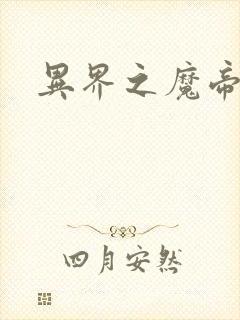 異界之魔帝
四月安然